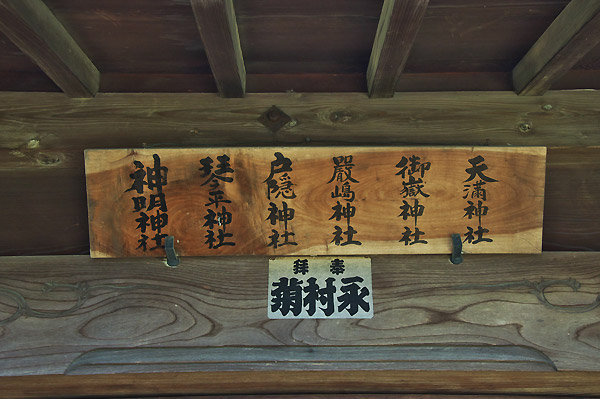 天満神社
御嶽神社
嚴嶋神社
戸隠神社
琴平神社
神明神社
奉拝
永村菊